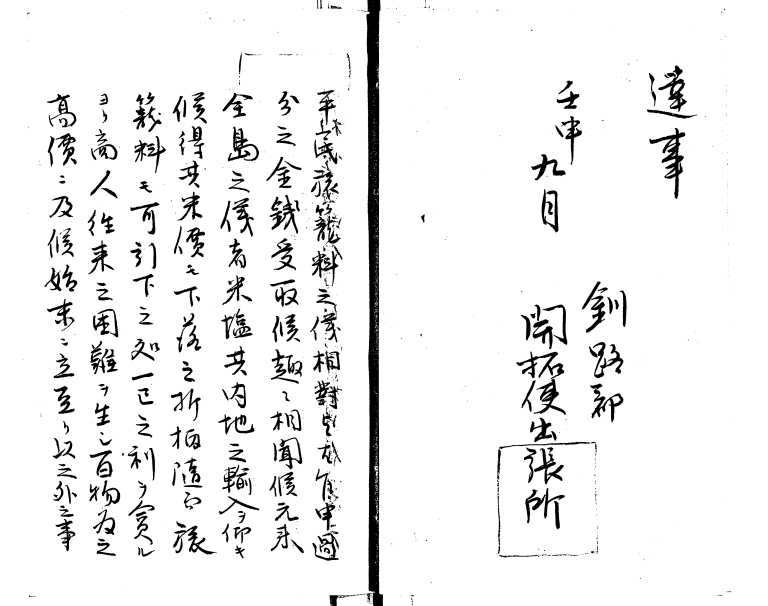 達事
壬申九月
釧路郡
開拓使出張所
旅籠料之儀相對
分之金銭受取候趣ニ相聞候元来
全島之儀者米塩共内地之輸入ヲ仰キ
候得共米價モ下落之折柄随而旅
籠料モ可引下之処一已之利ヲ貪ル
ヨリ商人往来之困難ヲ生シ百物為之
高價ニ及候始末ニ立至り以之外之事